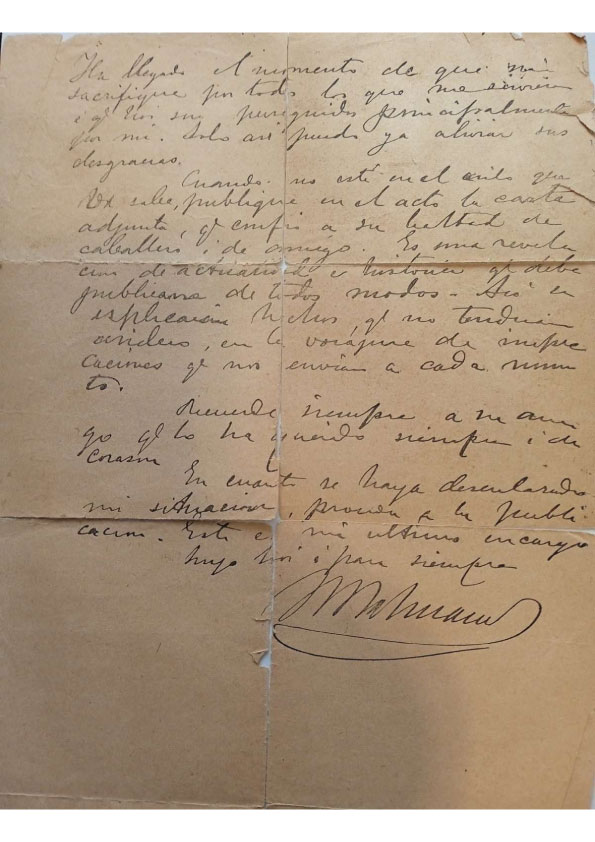 Ha llegado el momento de que me
sacrifique por todos los que me sirvieron
i qe son perseguidos principalmente
por mi. Solo asi puedo ya aliviar sus
desgracias.
Cuando no esté en el asilo que
Ud sabe, publique en el acto la carta
adjunta, qe confio a su lealtad de
caballero i de amigo. Es una revela
cion de actualidad e historia qe debe
publicarse de todos modos. Asi
esplicacion hechos, qe no tendrian
en la vorájine de impre
caciones qe nos envian a cada momen
to.
Recuerde siempre a su ami
go qe lo ha querido siempre i de
corazon
En cuanto se haya desenlazado
mi situacion, proceda a la publi
cacion. Este es mi ultimo encargo
Suyo hoi i para siempre
JMBalmaceda